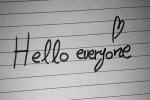 Hello everyone